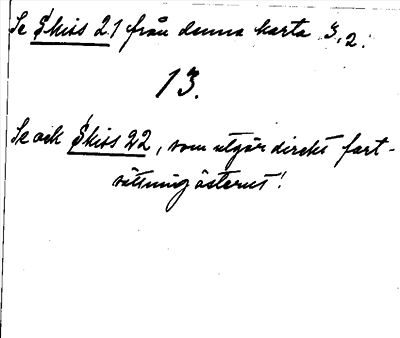 Se Skiss 21 från denna karta 3,2.
13.
Se och Skiss 22, som utgör direkt fort-
sättning österut!